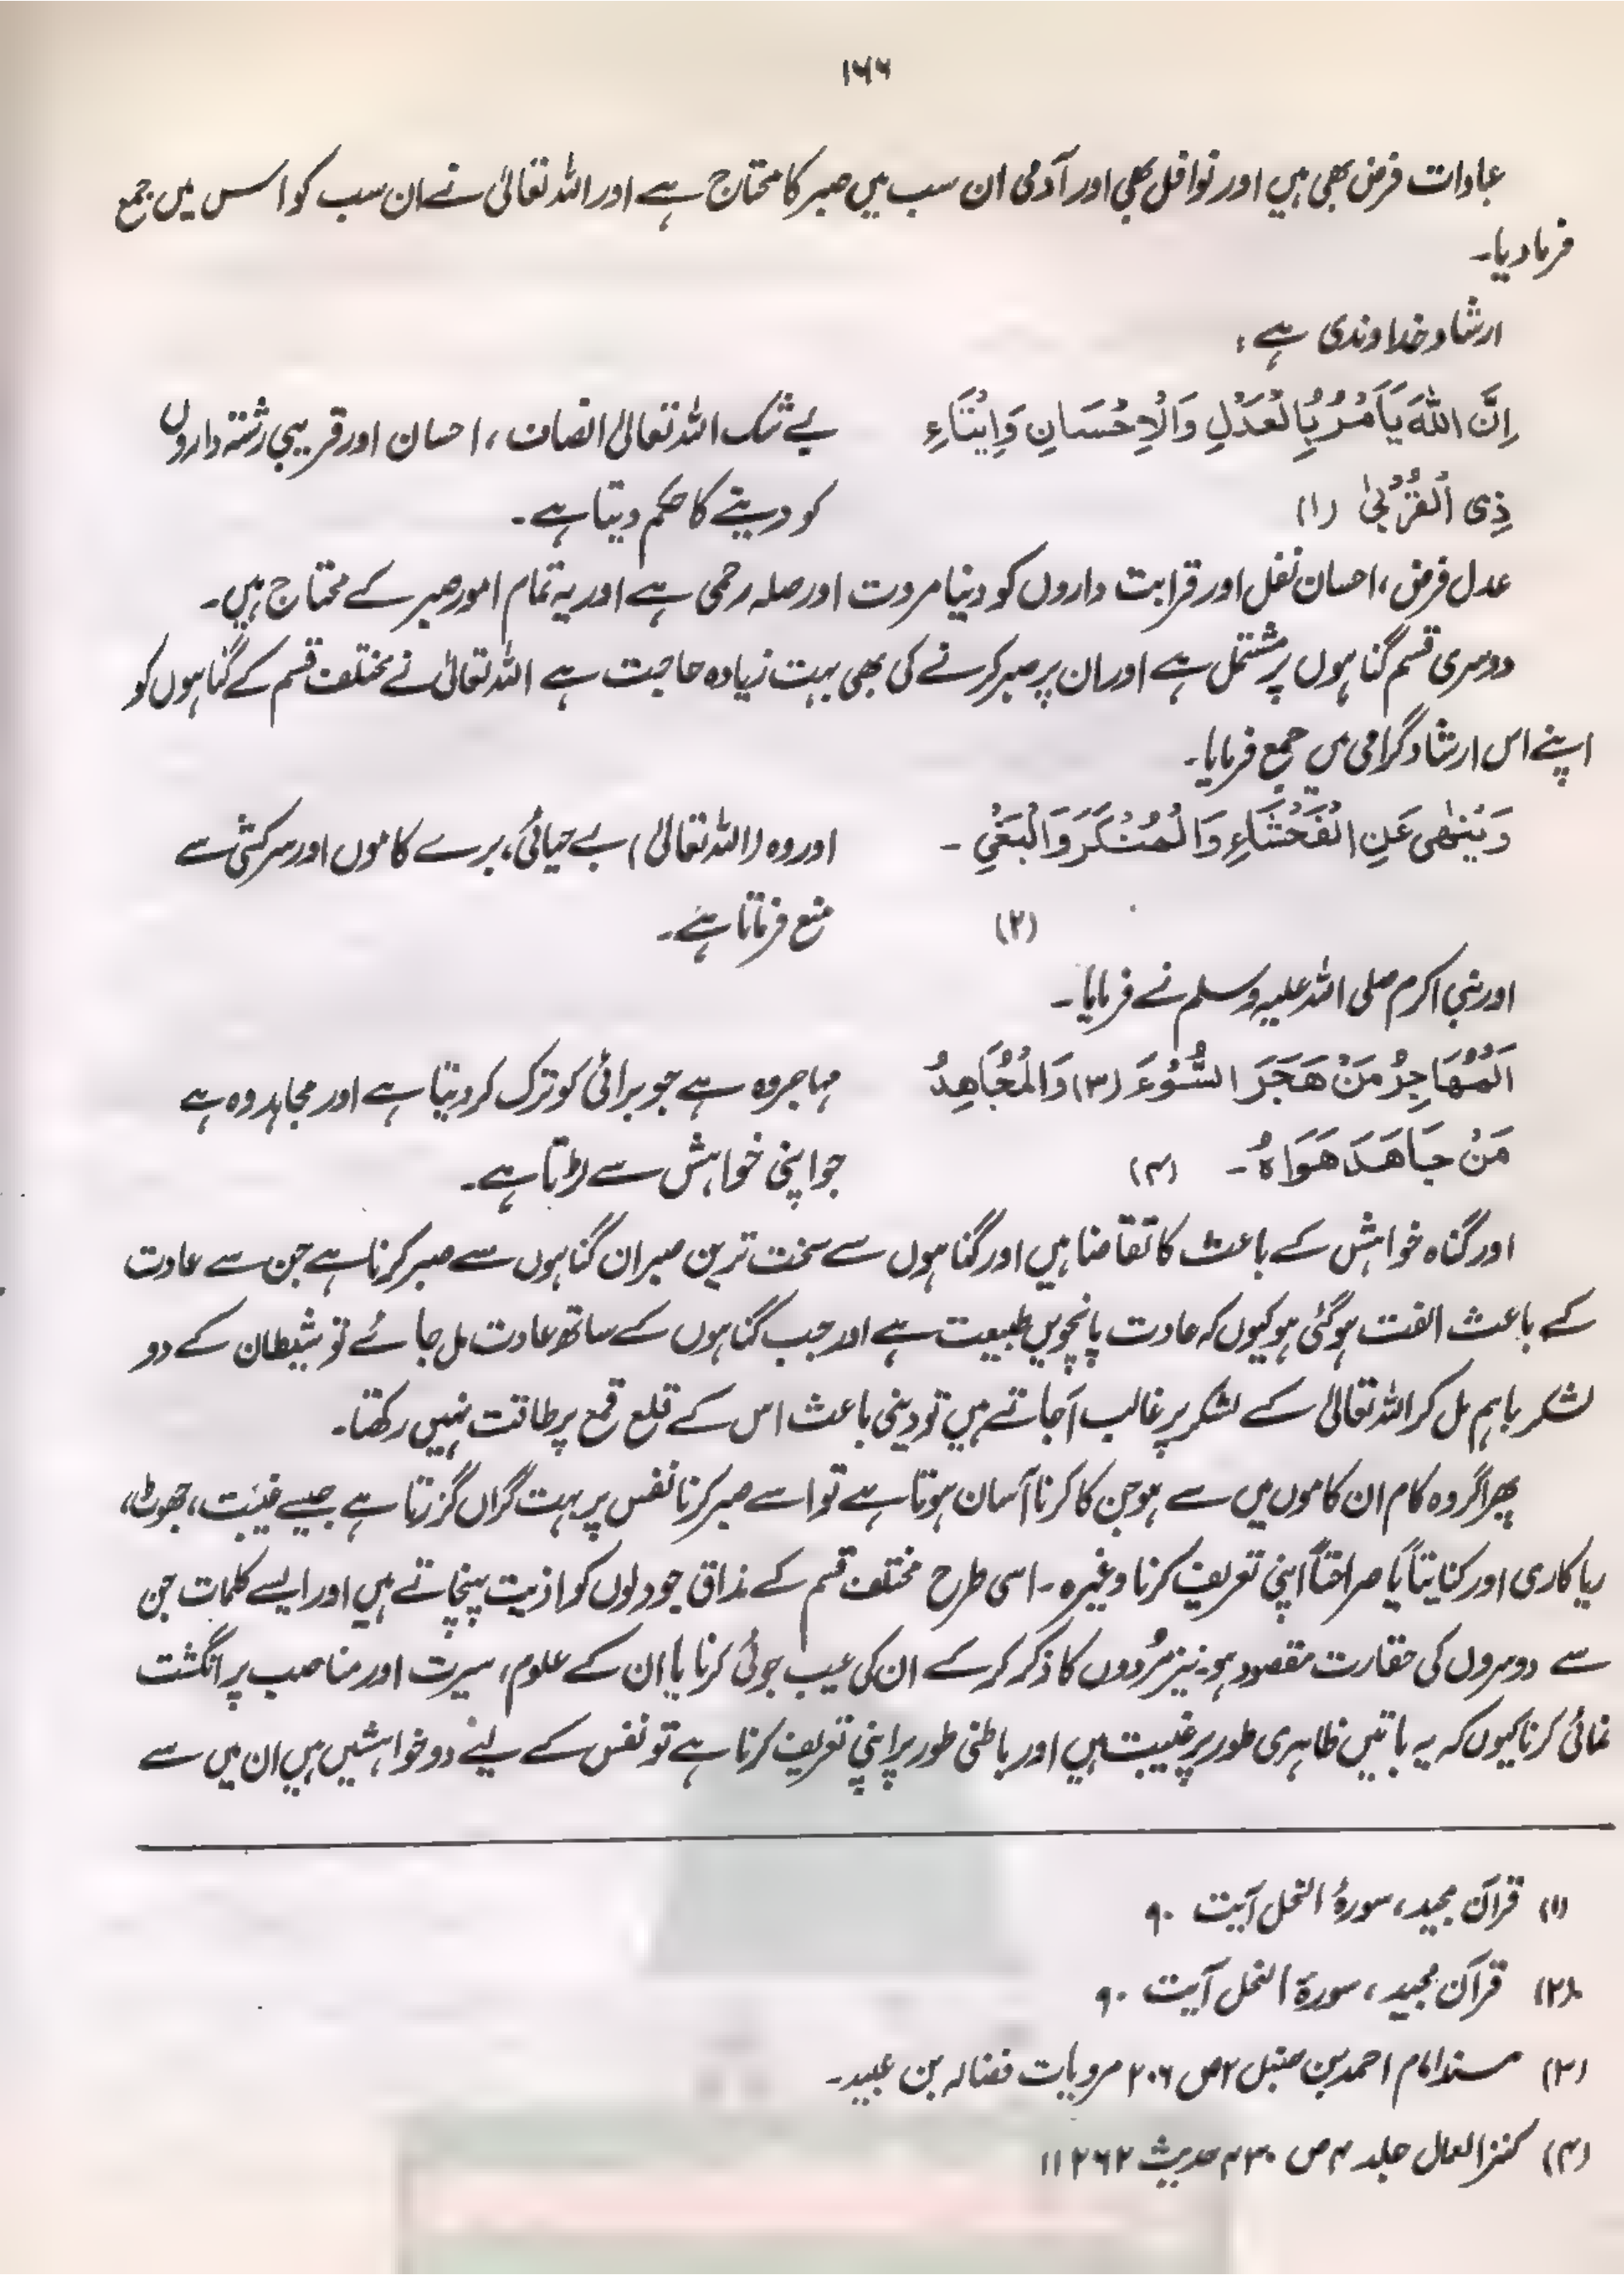 ۱۶۶
عبادات فرض بھی ہیں اور نوافل بھی اور آدمی ان سب میں صبر کا محتاج ہے اور اللہ تعالیٰ نے ان سب کو اس میں جمع
فرما دیا۔
ارشاد خداوندی ہے:
اِنَّ اللّٰهَ يَأْمُرُ بِالْعَدْلِ وَالْاِحْسَانِ وَاِيْتَاءِ
ذِی الْقُرْبٰی (۱)
بے شک اللہ تعالیٰ انصاف، احسان اور قریبی رشتہ داروں
کو دینے کا حکم دیتا ہے۔
عدل فرض، احسان نفل اور قرابت داروں کو دینا مروت اور صلہ رحمی ہے اور یہ تمام امور صبر کے محتاج ہیں۔
دوسری قسم گناہوں پر مشتمل ہے اور ان پر صبر کرنے کی بھی بہت زیادہ حاجت ہے اللہ تعالیٰ نے مختلف قسم کے گناہوں کو
اپنے اس ارشاد گرامی میں جمع فرمایا۔
وَيَنْهٰی عَنِ الْفَحْشَاءِ وَالْمُنْكَرِ وَالْبَغْیِ ۔
(۲)
اور وہ (اللہ تعالیٰ) بے حیائی، برے کاموں اور سرکشی سے
منع فرماتا ہے۔
اور نبی اکرم صلی اللہ علیہ وسلم نے فرمایا۔
اَلْمُهَاجِرُ مَنْ هَجَرَ السُّوْءَ (۳) وَالْمُجَاهِدُ
مَنْ جَاهَدَ هَوَاهُ۔ (۴)
مہاجر وہ ہے جو برائی کو ترک کر دیتا ہے اور مجاہد وہ ہے
جو اپنی خواہش سے لڑتا ہے۔
اور گناہ خواہش کے باعث کا تقاضا ہیں اور گناہوں سے سخت ترین صبر ان گناہوں سے صبر کرنا ہے جن سے عادت
کے باعث الفت ہو گئی ہو کیوں کہ عادت پانچویں طبیعت ہے اور جب گناہوں کے ساتھ عادت مل جائے تو شیطان کے دو
لشکر باہم مل کر اللہ تعالیٰ کے لشکر پر غالب آجاتے ہیں تو دینی باعث اس کے قلع قمع پر طاقت نہیں رکھتا۔
پھر اگر وہ کام ان کاموں میں سے ہو جن کا کرنا آسان ہوتا ہے تو اسے صبر کرنا نفس پر بہت گراں گزرتا ہے جیسے غیبت، جھوٹ،
ریا کاری اور کنایتاً یا صراحتاً اپنی تعریف کرنا وغیرہ۔ اسی طرح مختلف قسم کے مذاق جو دلوں کو اذیت پہنچاتے ہیں اور ایسے کلمات جن
سے دوسروں کی حقارت مقصود ہو نیز مُردوں کا ذکر کر کے ان کی عیب جوئی کرنا یا ان کے علوم، سیرت اور مناصب پر انگشت
نمائی کرنا کیوں کہ یہ باتیں ظاہری طور پر غیبت ہیں اور باطنی طور پر اپنی تعریف کرنا ہے تو نفس کے لیے دو خواہشیں ہیں ان میں سے
(۱) قرآن مجید، سورۂ النحل آیت ۹۰
(۲) قرآن مجید، سورۃ النحل آیت ۹۰
(۳) مسند امام احمد بن حنبل ۲ ص ۲۰۶ مرویات فضالہ بن عبید۔
(۴) کنز العمال جلد ۴ ص ۴۳۰ حدیث ۱۱۲۶۲